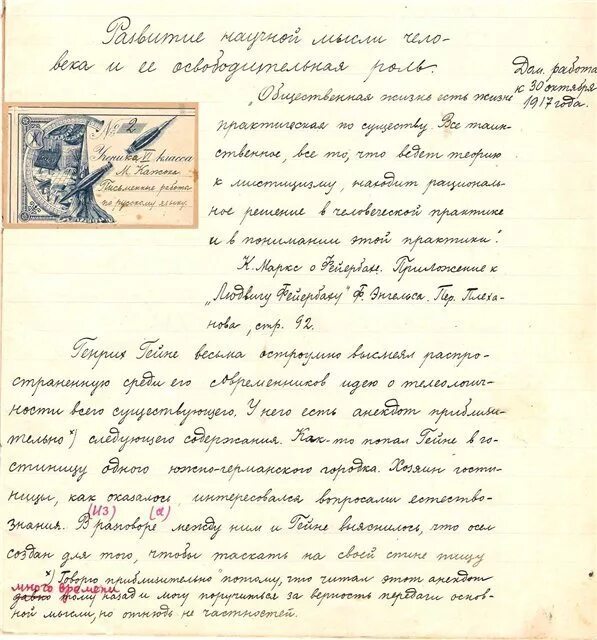 Развитие научной мысли чело-
века и ее освободительная роль.
Дом. работа
к 30 октября
1917 года.
„Общественная жизнь есть жизнь
практическая по существу. Все таин-
ственное, все то, что ведет теорию
к мистицизму, находит рациональ-
ное решение в человеческой практике
и в понимании этой практики".
К. Маркс о Фейербахе. Приложение к
„Людвигу Фейербаху" Ф. Энгельса. Пер. Плеха-
нова, стр. 92.
№ 2
Ученика VI класса
М.
Письменные работы
по русскому языку.
Генрих Гейне весьма остроумно высмеял распро-
страненную среди его современников идею о телеологич-
ности всего существующего. У него есть анекдот приблизи-
тельно*) следующего содержания. Как-то попал Гейне в го-
стиницу одного южно-германского городка. Хозяин гости-
ницы, как оказалось, интересовался вопросами естество-
(из) (а)
знания. В разговоре между ним и Гейне выяснилось, что осел
создан для того, чтобы таскать на своей спине пищу
*) Говорю „приблизительно" потому, что читал этот анекдот
много времени
давно тому назад и могу поручиться за верность передачи основ-
ной мысли, но отнюдь не частностей.